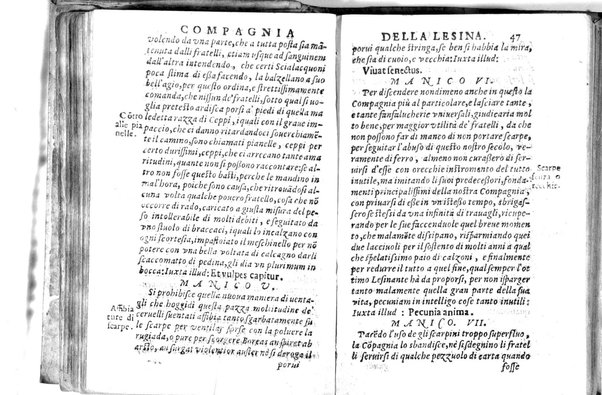 COMPAGNIA
volendo da vna parte, che a tutta posta sia mã
tenuta dalli fratelli, etiam vsque ad sanguinem
dall'altra intendendo, che certi Scialacquoni
poca stima di essa facendo, la balzellano a suo
bell'agio, per questo ordina, e strettissimamente
comanda, che nissun de' fratelli, sotto qual si vo-
glia pretesto ardisca porsi a' piedi di quella ma
ledetta razza di Ceppi, i quali con il graue im-
paccio, che ci danno ritardandoci souerchiamẽ-
te il camino, sono chiamati pianelle, ceppi per
certo durissimi, ceppi, che ci arrecano tante ama
ritudini, quante non si possono raccontare: se al
tro non fosse questo basti, perche le mandino in
mal'hora, poiche sono causa, che ritrouãdosi al-
cuna volta qualche pouero fratello, cosa che nõ
occorre di rado, caricato a giusta misura del pe-
so intollerabile di molti debiti, e seguitato da
vno stuolo di braccaci, iquali lo incalzano con
ogni scortesia, impastoiato il meschinello per nõ
potere con vna bella voltata di calcagno darli
scaccomatto di pedina, gli dia vn plurimum in
bocca: Iuxta illud: Et vulpes capitur.
Cõtro
alle pia
nelle.
MANICO V.
Si prohibisce quella nuoua maniera di uenta-
gli che hoggidi questa pazza moltitudine de'
ceruelli suentati assibia tanto sgarbatamente sù
le scarpe per ventilar forse con la poluere la
rugiada, o pure per scorgere Boreas an spiret ab
arcto, an surgat violentior
anzi
porui
DELLA LESINA. 47
porui qualche stringa, se ben si habbia la mira,
che sia di cuoio, e vecchia: Iuxta illud:
Viuat senectus.
MANICO VI.
Per discendere nondimeno anche in questo la
Compagnia più al particolare, e lasciare tante,
e tante fanfalucherie vniuersali, giudicaria mol
to bene, per maggior vtilità de' fratelli, da che
non possono far di manco di non portare scarpe,
per seguitar l'abuso di questo nostro secolo, ve-
ramente di ferro, almeno non curassero di for-
nirsi d'esse con orecchie instromento del tutto
inutile, ma imitando li suoi predecessori, fonda-
menti principalissimi della nostra Compagnia,
con priuarsi di esse in vn istesso tempo, sbrigas-
sero se stesi da vna infinita di trauagli, ricupe-
rando per le sue facenduole quel breue momen-
to, che malamente si dispaino, risparmiando quei
due lacciuoli per il sostento di molti anni a qual
che spelatissimo paio di calzoni, e finalmente
per redurre il tutto a quel fine, qual semper l'ot
timo Lesinante hà da proporsi, per non isparger
tanto malamente quella gran parte della sua
vita, pecuniam intelligo cose tanto inutili:
Iuxta illud: Pecunia anima.
Scarpe
MANICO. VII.
Parẽdo l'uso de gli scarpini troppo superfluo,
la Cõpagnia lo sbandisce, nè si sdegnino li fratel
li seruirsi di qualche pezzuolo di carta quando
fosse